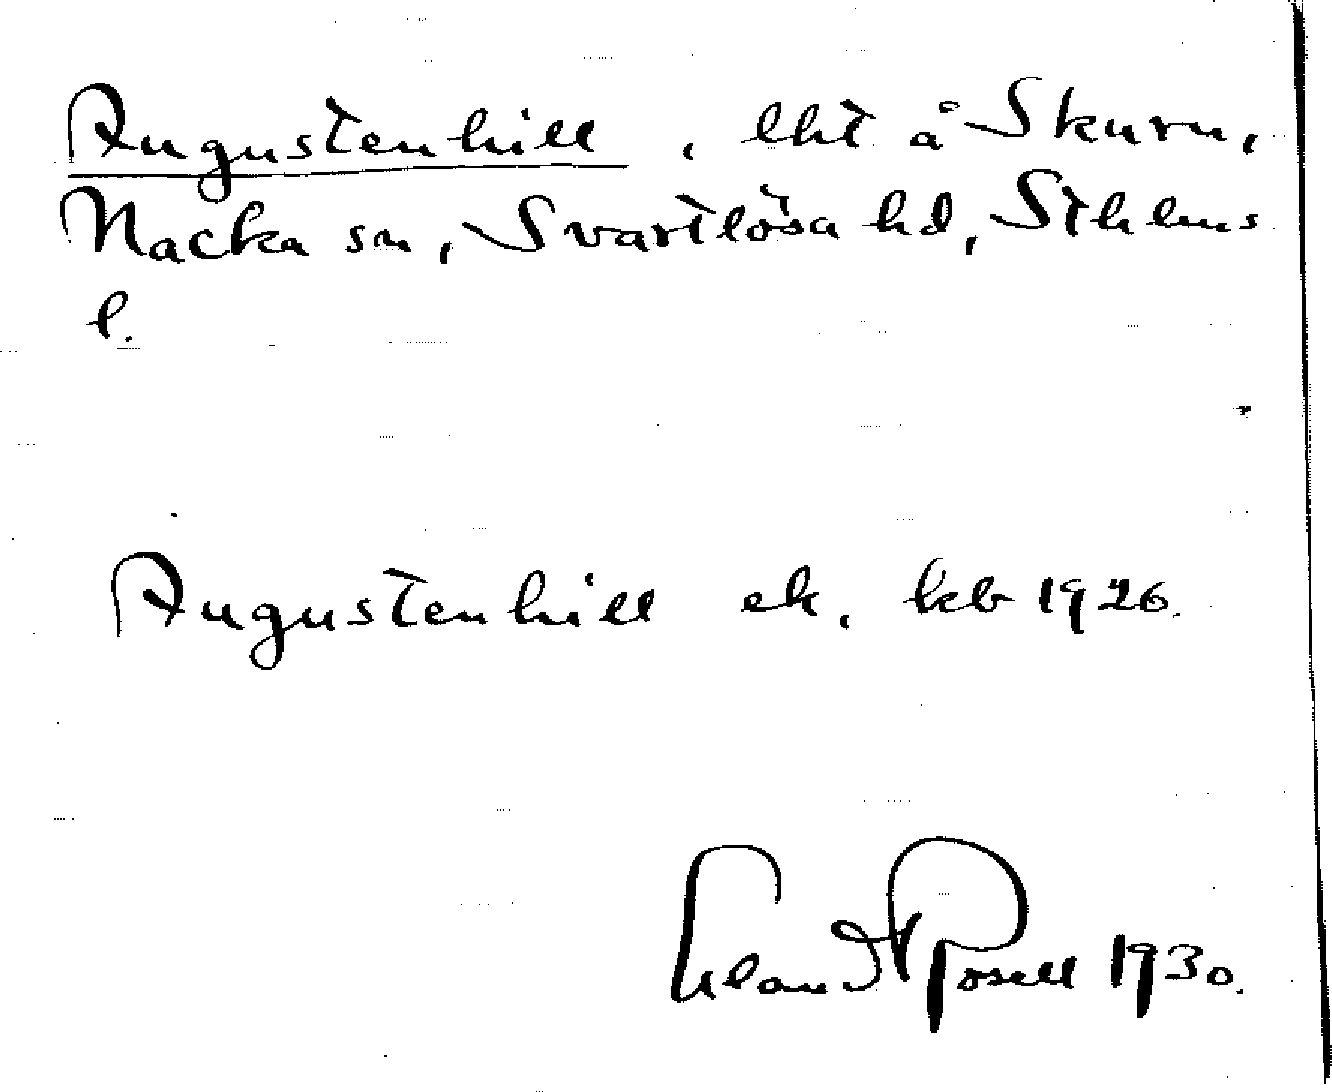 Augustenhill, lht å Skuru,
Nacka sn, Svartlösa hd, Sthlms
l.
Augustenhill ek. kb 1926.
Rosell 1930.